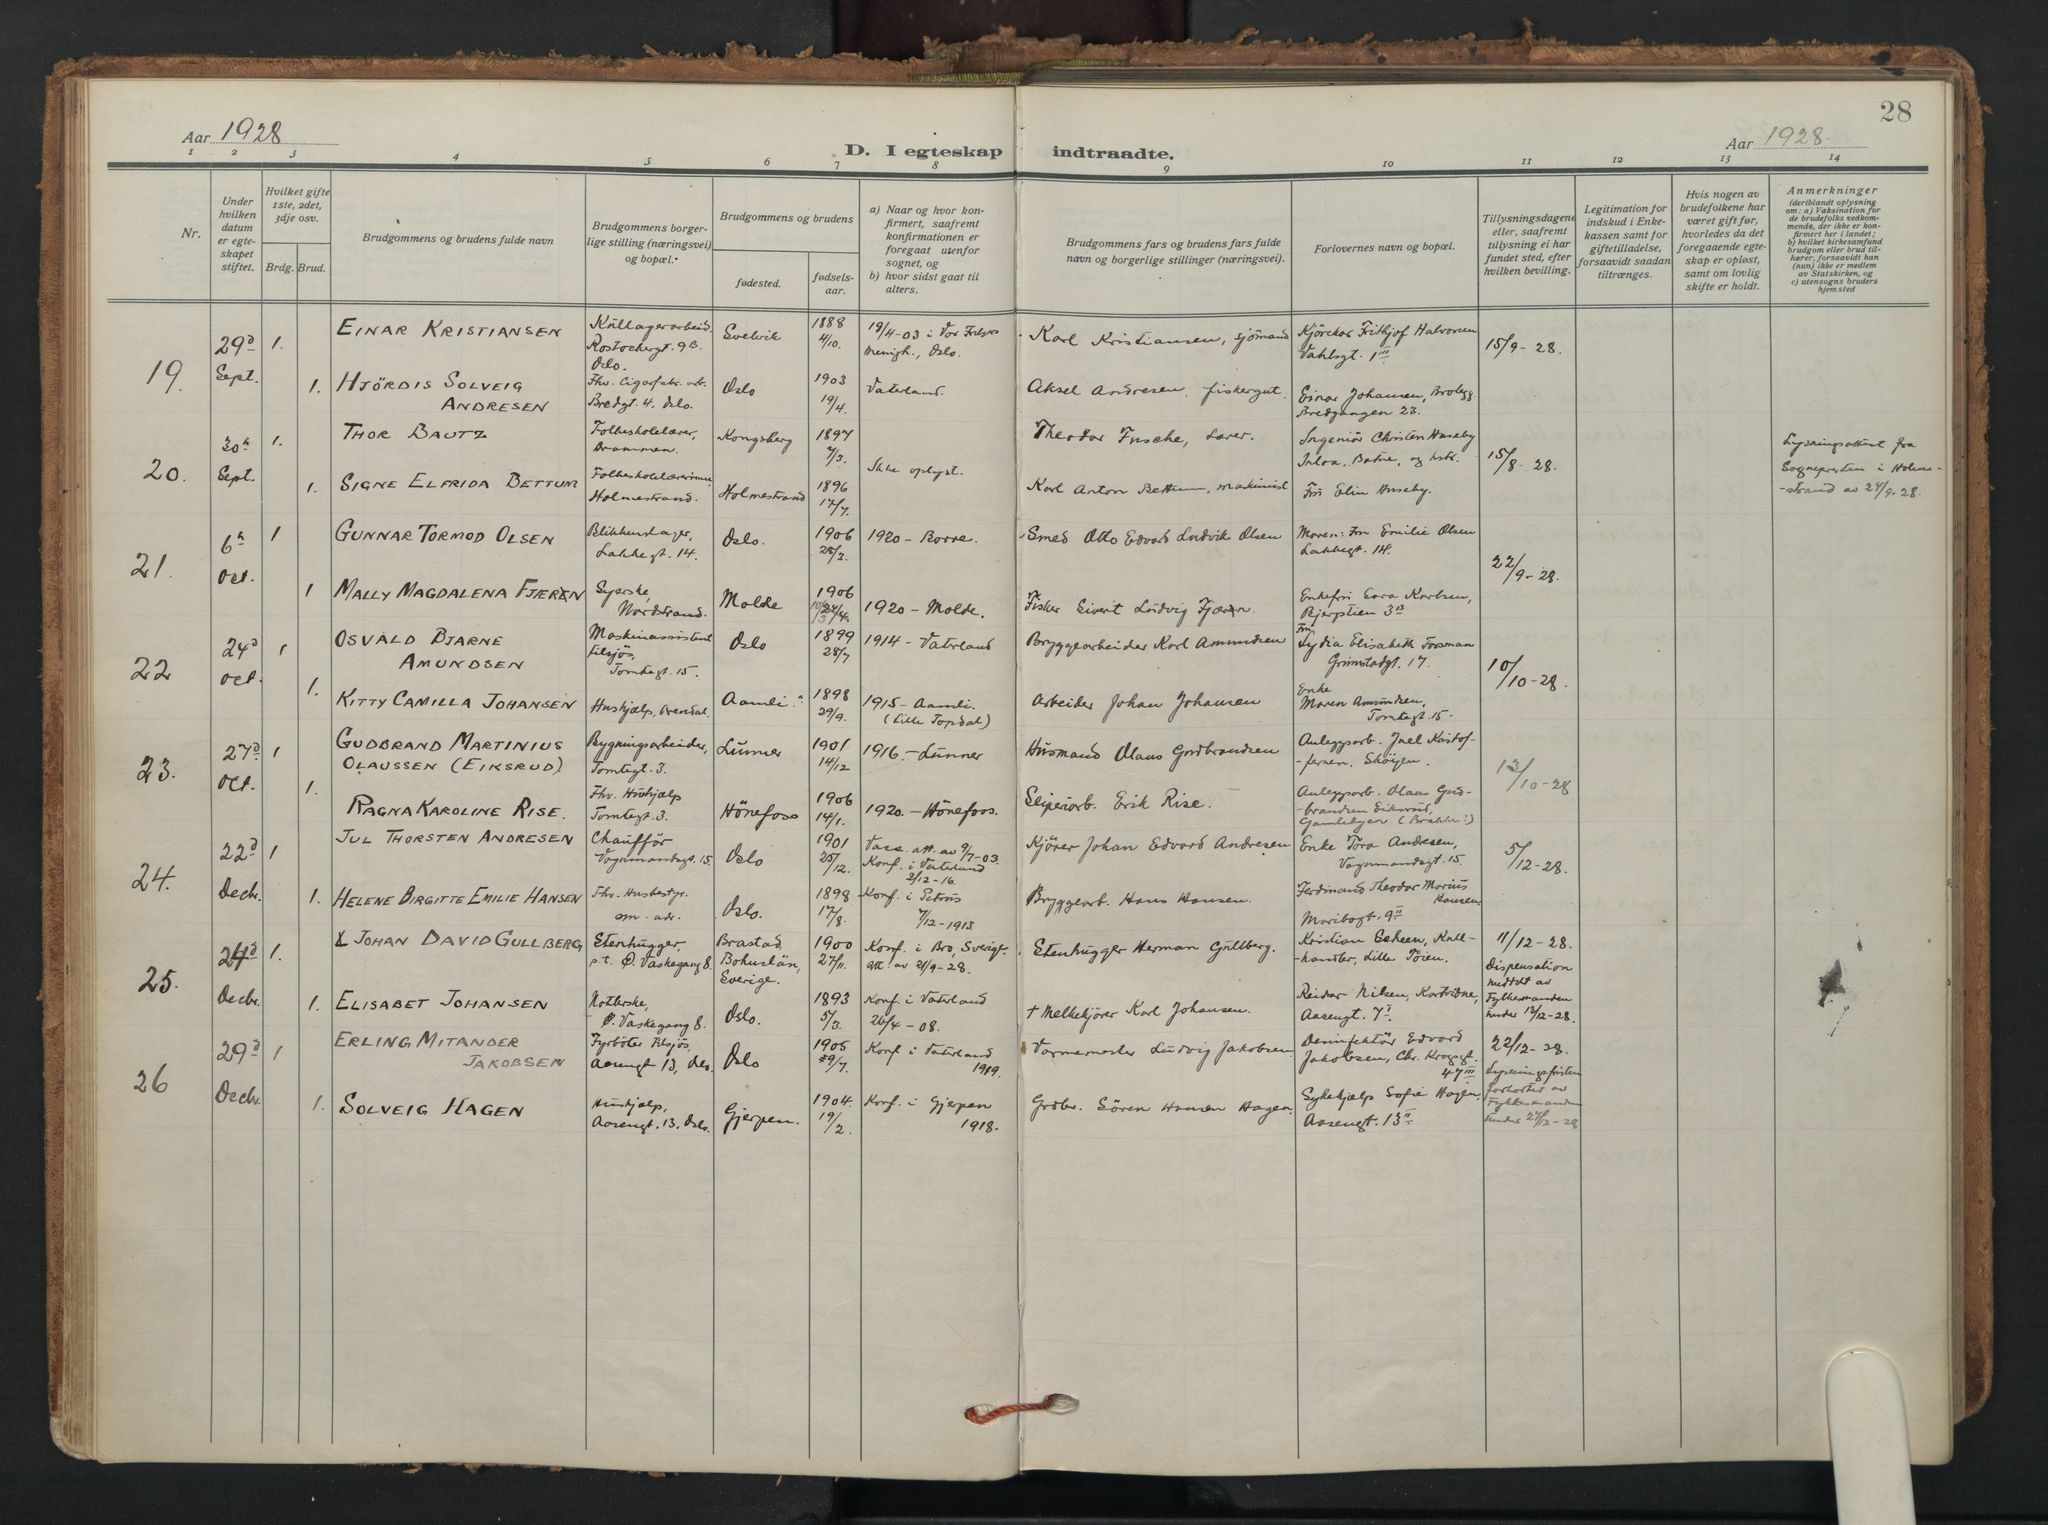 28
Aar 1928
D. I egteskap indtraadte.
Aar 1928.
1 2 3 4 5 6 7 8 9 10 11 12 13 14
Nr.
Under hvilken datum er egteskapet stiftet.
Hvilket gifte 1ste, 2det, 3dje osv.
Brdg. Brud.
Brudgommens og brudens fulde navn
Brudgommens borgerlige stilling (næringsvei) og bopæl.
Brudgommens og brudens
fødested.
fødselsaar.
a) Naar og hvor konfirmert, saafremt konfirmationen er foregaat utenfor sognet, og
b) hvor sidst gaat til alters.
Brudgommens fars og brudens fars fulde navn og borgerlige stillinger (næringsvei).
Forlovernes navn og bopæl.
Tillysningsdagene eller, saafremt tillysning ei har fundet sted, efter hvilken bevilling.
Legitimation for indskud i Enkekassen samt for giftetilladelse, forsaavidt saadan tiltrænges.
Hvis nogen av brudefolkene har været gift før, hvorledes da det foregaaende egteskap er opløst, samt om lovlig skifte er holdt.
Anmerkninger
(deriblandt oplysning om: a) Vaksination for de brudefolks vedkommende, der ikke er konfirmert her i landet; b) hvilket kirkesamfund brudgom eller brud tilhører, forsaavidt han (hun) ikke er medlem av Statskirken, og c) utensogns bruders hjemsted
19. 29d Sept. 1. EINAR KRISTIANSEN Kullagerarbeid. Rostockergt. 9B. Oslo. Svelvik 1888 4/10. 19/4-03 i Vor Frelsers menigh., Oslo. Karl Kristiansen, sjömand Kjörekar Frithjof Halvorsen Vahlsgt. 1 III 15/9-28.
1. HJÖRDIS SOLVEIG ANDRESEN Fhv. Cigarfabr. arb. Bredgt. 4. Oslo. Oslo 1903 19/4. Vaterland. Aksel Andresen, fiskergut. Einar Johansen, Brolegg. Bredgangen 23.
20. 30. Sept. 1. THOR BAUTZ Folkeskolelærer, Drammen. Kongsberg 1897 7/3. Ikke oplyst. Theodor Fusche, Lærer. Ingeniör Christen Huseby 15/8-28. Lysningsattest fra Sognepresten i Holmestrand av 24/9-28.
1. SIGNE ELFRIDA BETTUM Folkeskolelærerinne, Holmestrand. Holmestrand 1896 17/7. Karl Anton Bettum, maskinist Fru Elin Huseby.
21. 6. Oct. 1 GUNNAR TORMOD OLSEN Lakkegt. 14. Oslo. 1906 28/3. 1920 - Borre. Smed Otto Edvard Ludvik Olsen Moren: Fru Emilie Olsen Lakkegt. 14. 22/9-28.
1 MALLY MAGDALENA FJÆREN Syerske, Nordstrand. Molde 1906 1920 - Molde. Fisker Sivert Ludvig Fjæren. Enkefru Sara Karlsen, Bjerpstien 3B
22 24d Oct. 1 OSVALD BJARNE AMUNDSEN Maskinassistent tilsjös, Tomtegt. 15. Oslo 1899 28/7 1914 - Vaterland Bryggearbeider Karl Amundsen Fru Lydia Elisabeth Torsman Grimstadgt. 17. 10/10-28.
1. KITTY CAMILLA JOHANSEN Hushjælp, Arendal. Aamli. 1898 29/9. 1915 - Aamli. (Lille Topdal) Arbeider Johan Johansen Enke Maren Amundsen, Tomtegt. 15.
23. 27d Oct. 1 GUDBRAND MARTINIUS OLAUSSEN (EIKSRUD) Bygningsarbeider, Tomtegt. 3. Lunner 1901 14/12 1916. - Lunner Husmand Olaus Gudbrandsen Anleggsarb. Juel Kristoffersen, Sköyen. 13/10-28
1. RAGNA KAROLINE RISE. Fhv. Hushjælp Tomtegt. 3. Hönefoss 1906 14/1. 1920. - Hönefoss. Sliperiarb. Erik Rise. Anleggsarb. Olaus Gudbrandsen Eiksrud, Gamlebyen (Brakke:)
24. 22d Decbr. 1 JUL THORSTEN ANDRESEN Chauffør Vognmandsgt. 15. Oslo 1901 25/12. Vacc. att. av 9/7-03. Konf. i Vaterland 3/12-16. Kjörer Johan Edvard Andresen Enke Tora Andresen, Vognmandsgt. 15. 5/12-28.
1. HELENE BIRGITTE EMILIE HANSEN Fhv. Husbestyr. sm. adr. Oslo. 1898 17/8. Konf. i Petrus 7/12-1913 Bryggearb. Hans Hansen. Ferdinand Theodor Marius Hansen Maribogt. 9 II
25. 24d Decbr. 1. JOHAN DAVID GULLBERG Stenhugger, p.t. Ö. Vaskegang 8. Brastad, Bohuslän, Sverige. 1900 27/11. Konf. i Bro, Sverige att av 21/9-28. Stenhugger Herman Gullberg. Kristian Scheen, Kullhandler, Lille Töien. 11/12-28. Dispensation meddt av Fylkesmanden under 12/12-28.
1. ELISABET JOHANSEN Ö. Vaskegang 8. Oslo. 1893 5/3. Konf. i Vaterland 26/4-08. + Melkekjörer Karl Johansen. Reidar Nilsen, Aasengt. 7 I
26 29d Decbr. 1 ERLING MITANDER JAKOBSEN Fyrböter tilsjös, Aasengt 13, Oslo. Oslo 1905 29/7. Konf. i Vaterland 1919. Varmemester Ludvig Jakobsen. Desinfektör Edvard Jakobsen, Chr. Krohgsgt. 47 III 22/12-28. Lysningsfristen forkortet av Fylkesmanden under 27/12-28
1. SOLVEIG HAGEN Hushjælp, Aasengt. 13. Oslo. Gjerpen. 1904. 19/2. Konf. i Gjerpen 1918. Grdbr. Sören Hansen Hagen. Sykehjælp Sofie Hagen, Aasengt. 13 II